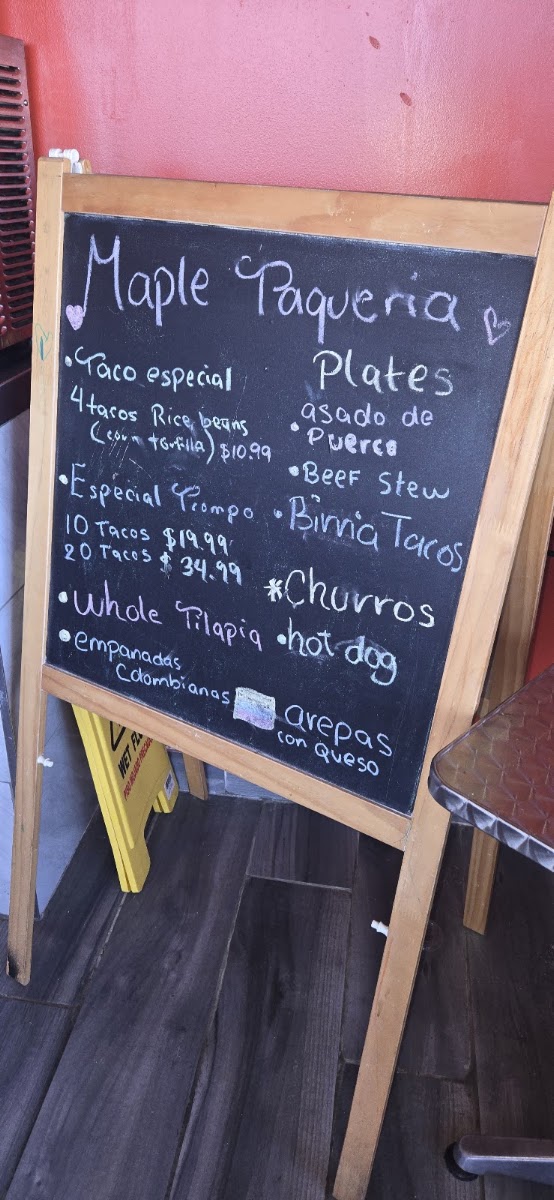 Maple Taqueria
• Taco especial
4 tacos Rice, beans
(corn tortilla) $10.99
• Especial Trompo
10 Tacos $19.99
20 Tacos $34.99
• Whole Tilapia
• empanadas
Colombianas
Plates
asado de
• Puerco
• Beef Stew
• Birria Tacos
*Churros
• hot dog
arepas
con queso
WET FL